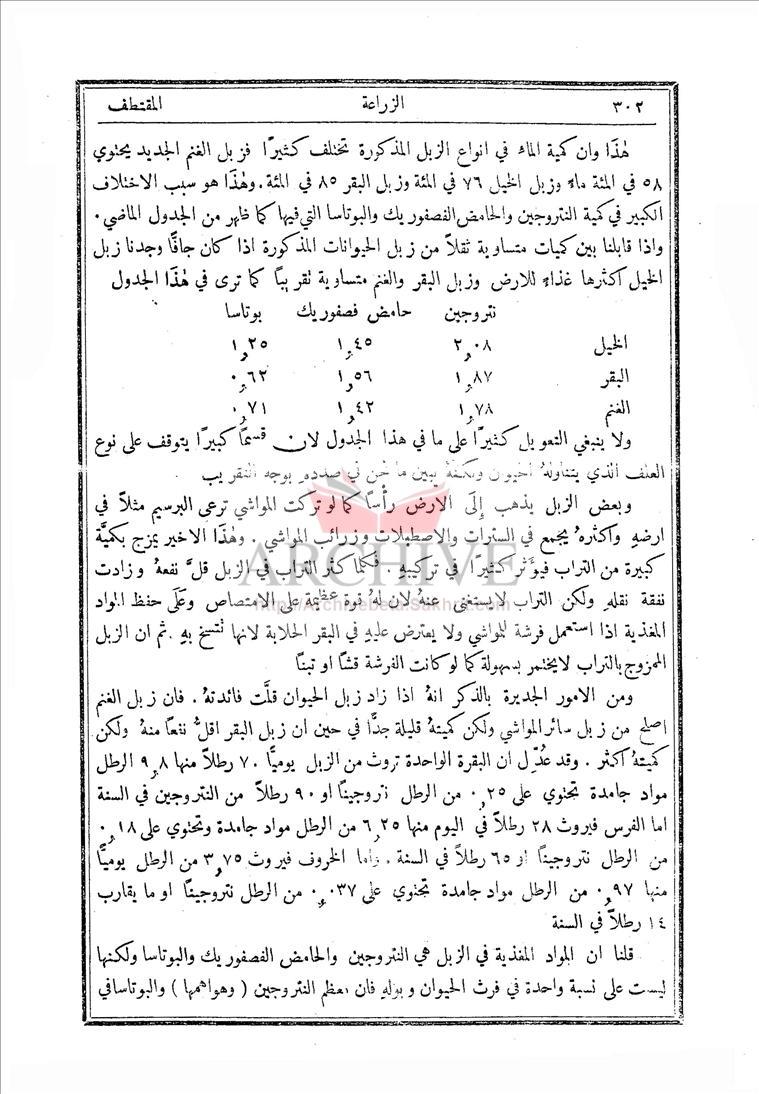 ٣٠٢ الزراعة المقتطف
هٰذَا وان كمية الماء في انواع الزبل المذكورة تختلف كثيرًا فزبل الغنم الجديد يحتوي
٥٨ في المئة ماء وزبل الخيل ٧٦ في المئة وزبل البقر ٨٥ في المئة. وهٰذَا هو سبب الاختلاف
الكبير في كمية النتروجين والحامض الفصفوريك والبوتاسا التي فيها كما ظهر من الجدول الماضي.
واذا قابلنا بين كميات متساوية ثقلاً من زبل الحيوانات المذكورة اذا كان جافًّا وجدنا زبل
الخيل اكثرها غذاءً للارض وزبل البقر والغنم متساوية تقريبًا كما ترى في هٰذَا الجدول
نتروجين حامض فصفوريك بوتاسا
الخيل ٢,٠٨ ١,٤٥ ١,٢٥
البقر ١,٨٧ ١,٥٦ ٠,٦٢
الغنم ١,٧٨ ١,٤٢ ٠,٧١
ولا ينبغي التعويل كثيرًا على ما في هذا الجدول لان قسمًا كبيرًا يتوقف على نوع
العلف الذي يتناولهُ الحيوان ولكنهُ يبين ما نحن في صدده بوجه التقريب
وبعض الزبل يذهب إِلَى الارض رأْسًا كما لو تركت المواشي ترعى البرسيم مثلاً في
ارضهِ واكثرهُ يجمع في السترات والاصطبلات وزرائب المواشي. وهٰذَا الاخير يمزج بكميَّة
كبيرة من التراب فيؤَثر كثيرًا في تركيبهِ. فكما كثر التراب في الزبل قلَّ نفعهُ وزادت
نفقة نقلهِ ولكن التراب لا يستغنى عنهُ لان لهُ قوة عظيمة على الامتصاص وعَلَى حفظ المواد
المغذية اذا استعمل فرشة للمواشي ولا يعترض عليهِ في البقر الحلابة لانها تتسخ بهِ. ثم ان الزبل
الممزوج بالتراب لا يختمر بسهولة كما لو كانت الفرشة قشًا او تبنًا
ومن الامور الجديرة بالذكر انهُ اذا زاد زبل الحيوان قلَّت فائدتهُ. فان زبل الغنم
اصلح من زبل سائر المواشي ولكن كميتهُ قليلة جدًّا في حين ان زبل البقر اقلُّ نفعًا منهُ ولكن
كميتهُ اكثر. وقد عُدِّل ان البقرة الواحدة تروث من الزبل يوميًّا ٧٠ رطلاً منها ٩,٨ الرطل
مواد جامدة تحتوي على ٠,٢٥ من الرطل نتروجينًا او ٩٠ رطلاً من النتروجين في السنة
اما الفرس فيروث ٢٨ رطلاً في اليوم منها ٦,٢٥ من الرطل مواد جامدة وتحتوي على ٠,١٨
من الرطل نتروجينًا او ٦٥ رطلاً في السنة. واما الخروف فيروث ٣,٧٥ من الرطل يوميًّا
منها ٠,٩٧ من الرطل مواد جامدة تحتوي على ٠,٠٣٧ من الرطل نتروجينًا او ما يقارب
١٤ رطلاً في السنة
قلنا ان المواد المغذية في الزبل هي النتروجين والحامض الفصفوريك والبوتاسا ولكنها
ليست على نسبة واحدة في فرث الحيوان وبولهِ فان معظم النتروجين (وهو اهمها) والبوتاسا في
ARCHIVE
http://Archivebeta.Sakhrit.com